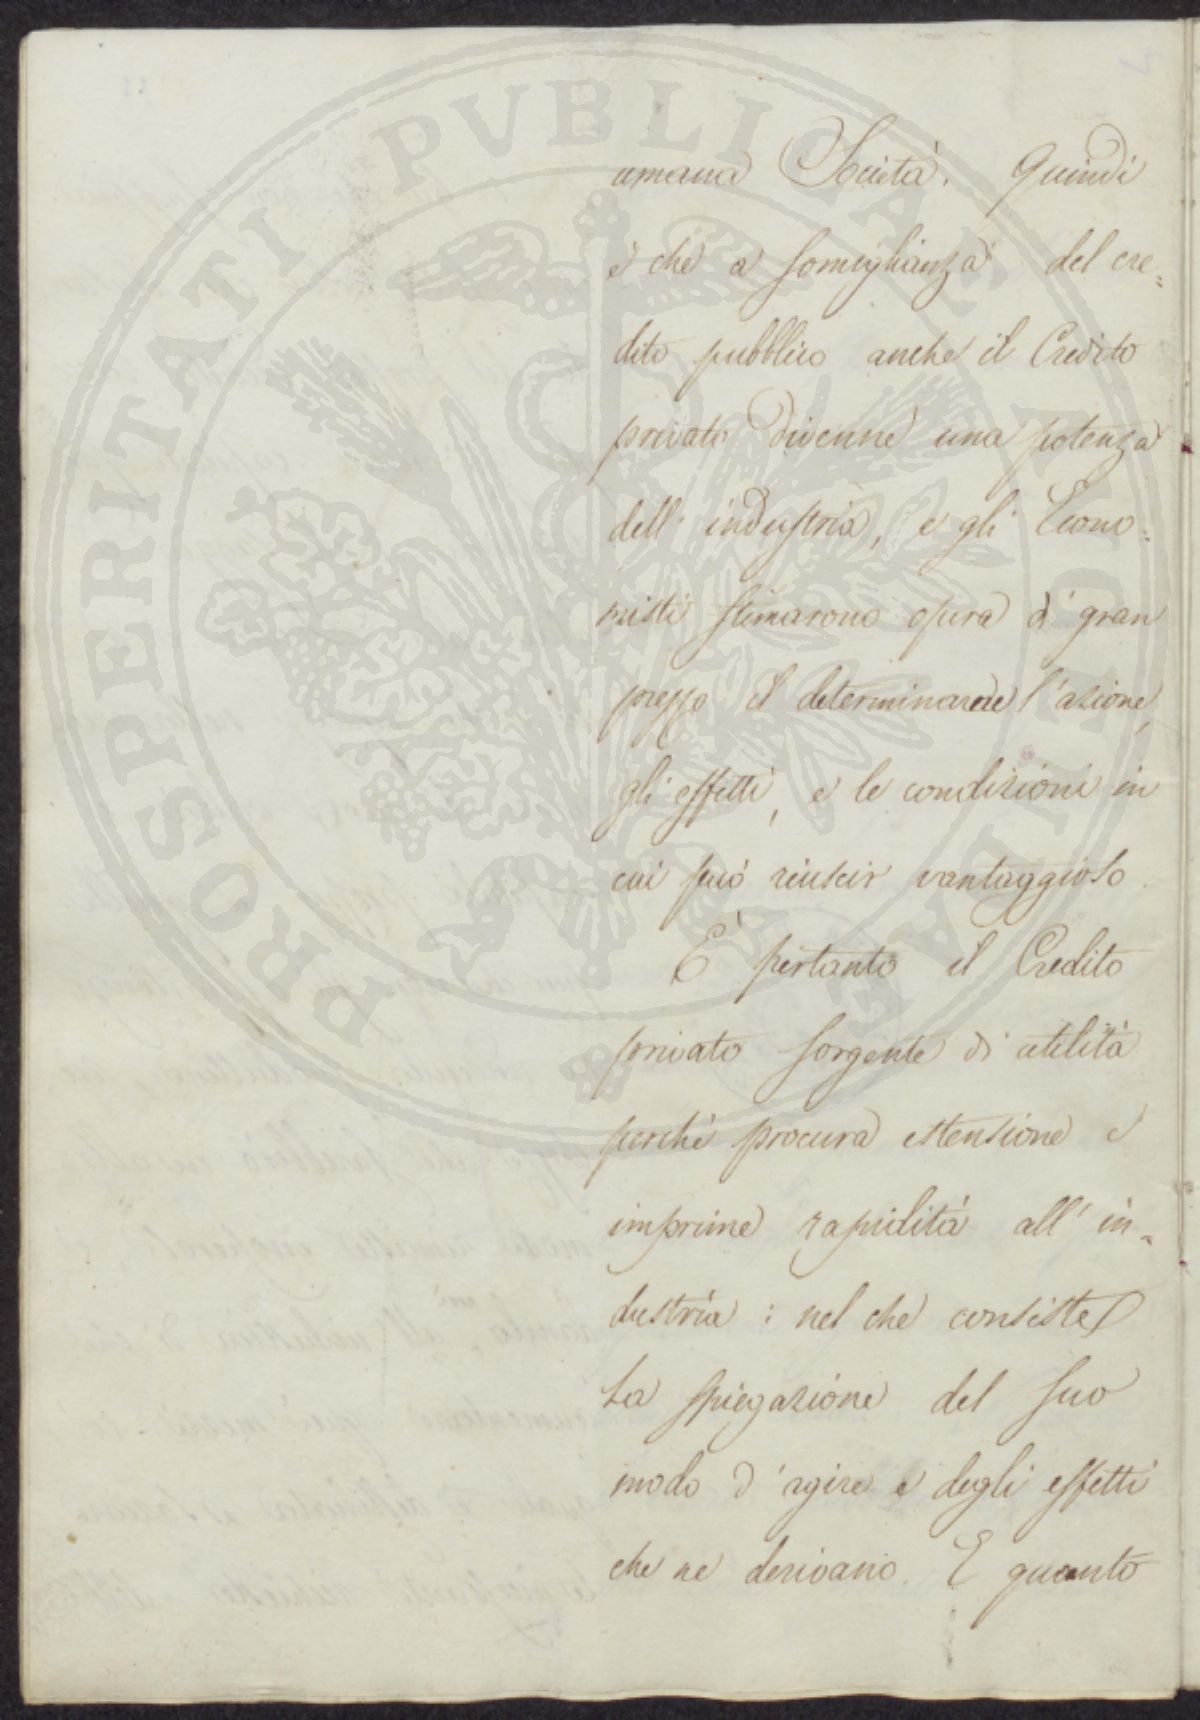 umana Società. Quindi
è che a somiglianza del cre=
dito pubblico anche il Credito
privato divenne una potenza
dell'industria, e gli Econo=
misti stimarono opera di gran
prezzo il determinarne l'azione,
gli effetti, e le condizioni in
cui può riuscir vantaggioso.
È pertanto il Credito
privato sorgente di utilità
perchè procura estensione e
imprime rapidità all'in=
dustria: nel che consiste
la spiegazione del suo
modo d'agire e degli effetti
che ne derivano. E quanto
PROSPERITATI PVBLICAE AVGENDAE